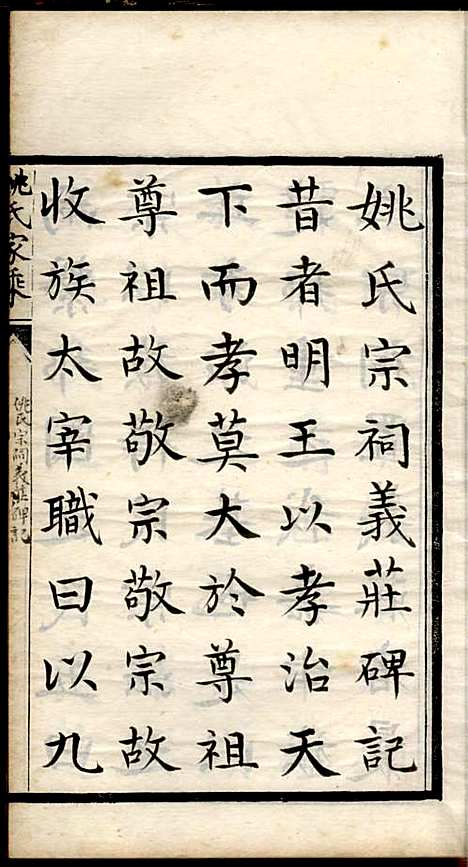 姚氏宗祠義莊碑記
昔者明王以孝治天
下而孝莫大於尊祖
尊祖故敬宗敬宗故
收族太宰職曰以九
姚氏家乘
姚氏宗祠義莊碑記